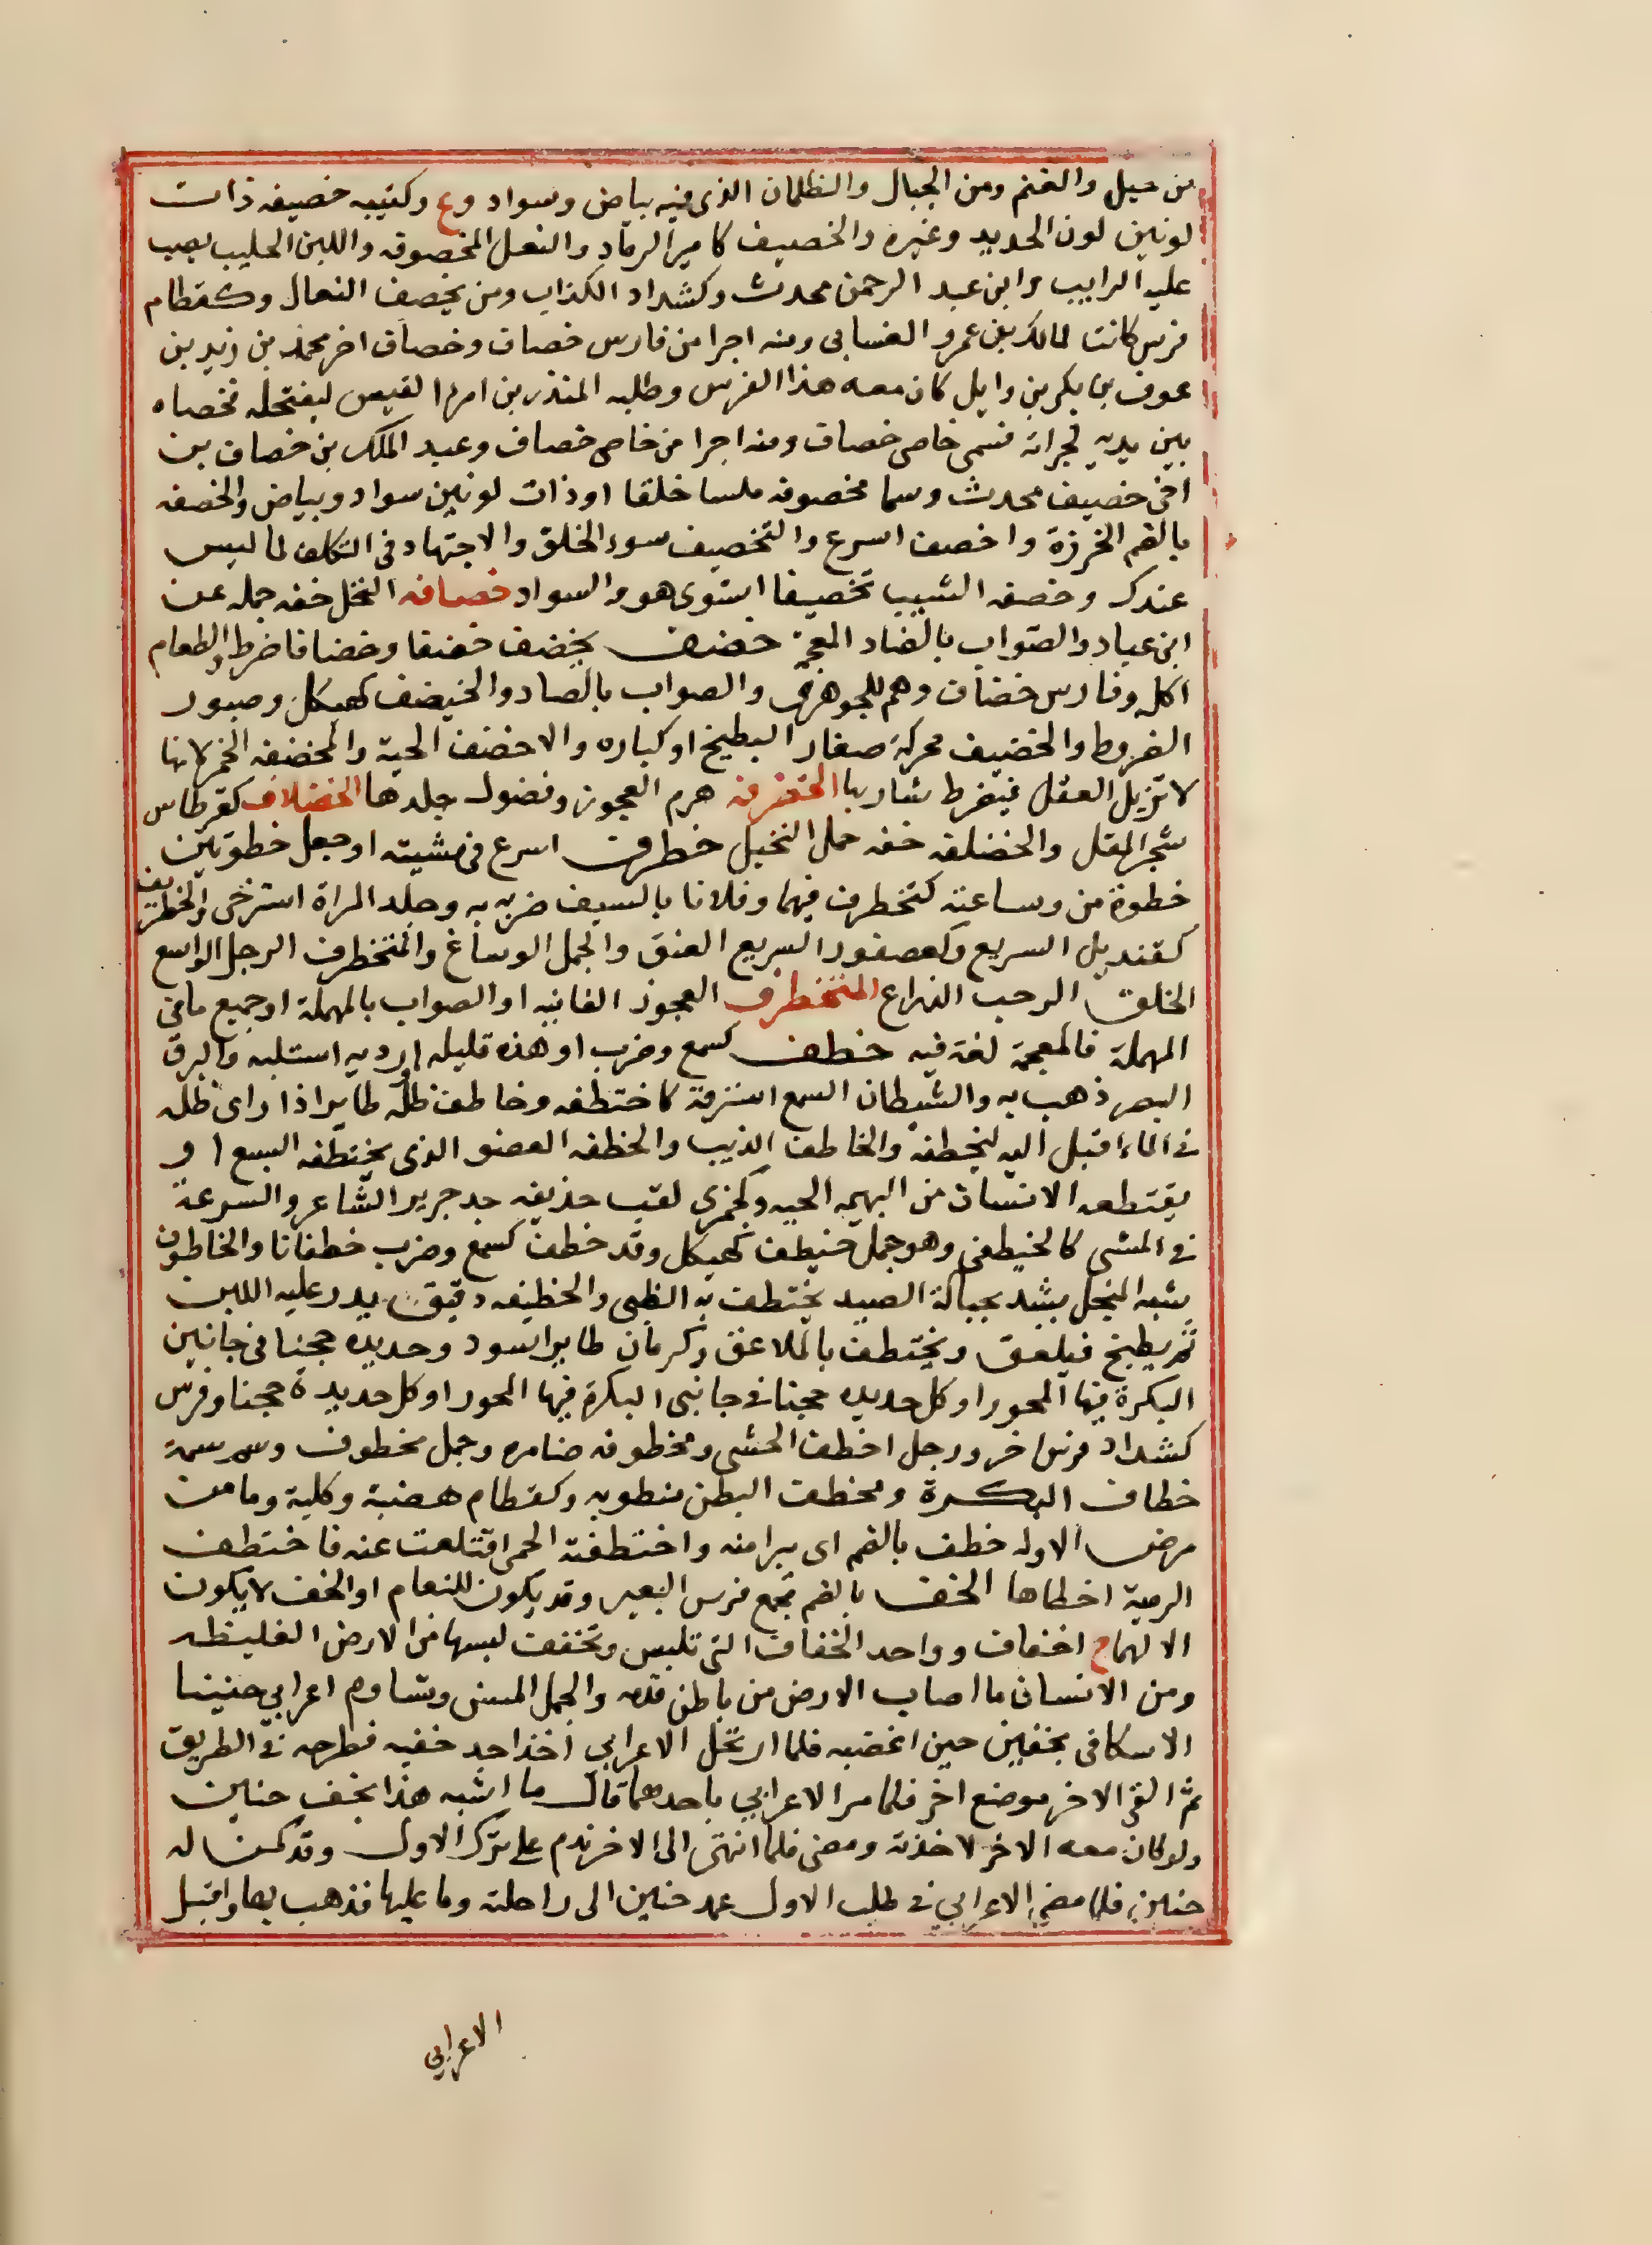 من حيل والغنم ومن الجبال والظلمان الذى فيه بياض وسواد وع وكتيبه خصيفه ذات
لونين لون الحديد وغيره والخصيف كامير الرماد والنعل المخصوفه واللبن الحليب يصب
عليه الرايب وابن عبد الرحمن محدث وكشداد الكذاب ومن يخصف النعال وكقطام
فرس كانت لمالك بن عمرو الغسانى ومنه اجرا من فارس خصاف وخصاف اخر محمله بن زيد بن
عوف بن بكر بن وايل كان معه هذا الفرس وطلبه المنذر بن امرا القيس ليفتحله فخصاه
بين يديه لجراته فسمى خاصى خصاف ومنه اجرا من خاصى خصاف وعبد الملك بن خصاف بن
اخى خصيف محدث وسما مخصوفه ملسا خلقا او ذات لونين سواد وبياض والخصفه
بالضم الخرزة واخصف اسرع والتخصيف سوء الخلق والاجتهاد فى التكلف لما ليس
عندك وخصفه الشيب تخصيفا استوى هو والسواد خصافه النخل خفه حمله عن
ابن عباد والصواب بالضاد المعجمة خضف يخضف خضفا وخضافا ضرط والطعام
اكله وفارس خضاف وهم للجوهرى والصواب بالصاد والخيضف كهيكل وصبور
الضروط والخضيف محركة صغار البطيخ او كباره والاخضف الحية والمخضفه الخمر لانها
لا تزيل العقل فيضرط شاربها الخضرفه هرم العجوز وفضول جلدها الخضلاف كقرطاس
شجر المقل والخضلفه خفه حمل النخيل خطرف اسرع فى مشيته او جعل خطوتين
خطوة من وساعته كتخطرف فيهما وفلانا بالسيف ضربه به وجلد المراة استرخى والخطريف
كقنديل السريع وكعصفور السريع العنق والجمل الوساع والمتخطرف الرجل الواسع
الخلق الرحب الذراع المتخظرف العجوز الفانيه او الصواب بالمهملة او جميع ما فى
المهملة فالمعجمة لغة فيه خطف كسمع وضرب او هذه قليله او رديه استلبه والبرق
البصر ذهب به والشيطان السمع استرقه كاختطفه وخاطف ظله طاير اذا راى ظله
فى الماء اقبل اليه ليخطفه والخاطف الذيب والخطفه العضو الذى يختطفه السبع او
يقتطعه الانسان من البهيمه الحيه وكجمزى لقب حذيفه جد جرير الشاعر والسرعة
فى المشى كالخيطفى وهو جمل خيطف كهيكل وقد خطف كسمع وضرب خطفانا والخاطوف
شبه المنجل يشد بحبالة الصيد يختطف به الظبى والخطيفه دقيق يذر عليه اللبن
ثم يطبخ فيلعق ويختطف بالملاعق وكرمان طاير اسود وحديده حجنا فى جانبى
البكرة فيها المحور او كل حديده حجنا فى جانبى البكرة فيها المحور او كل حديدة حجنا وفرس
كشداد فرس اخر ورجل اخطف الحشى ومخطوفه ضامره وجمل مخطوف وسم سمة
خطاف البكرة ومخطف البطن منطويه وكقطام هضبة وكلية وما من
مرض الا وله خطف بالضم اى يبرا منه واختطفته الحمى اقتلعت عنه فاختطف
الرمية اخطاها الخف بالضم مجمع فرس البعير وقد يكون للنعام او الخف لا يكون
الا لهما ج اخفاف وواحد الخفاف التى تلبس وتخفف لبسها من الارض الغليظه
ومن الانسان ما اصاب الارض من باطن قدمه والجمل المسن وتساوم اعرابي حنينا
الاسكافى بخفين حين اغضبه فلما ارتحل الاعرابي اخذ احد خفيه فطرحه فى الطريق
ثم القى الاخر موضع اخر فلما مر الاعرابي باحدهما قال ما اشبه هذا بخف حنين
ولو كان معه الاخر لاخذته ومضى فلما انتهى الى الاخر ندم على ترك الاول وقد كمن له
حنين فلما مضى الاعرابي فى طلب الاول عمد حنين الى راحلته وما عليها فذهب بها واقبل
الاعرابي